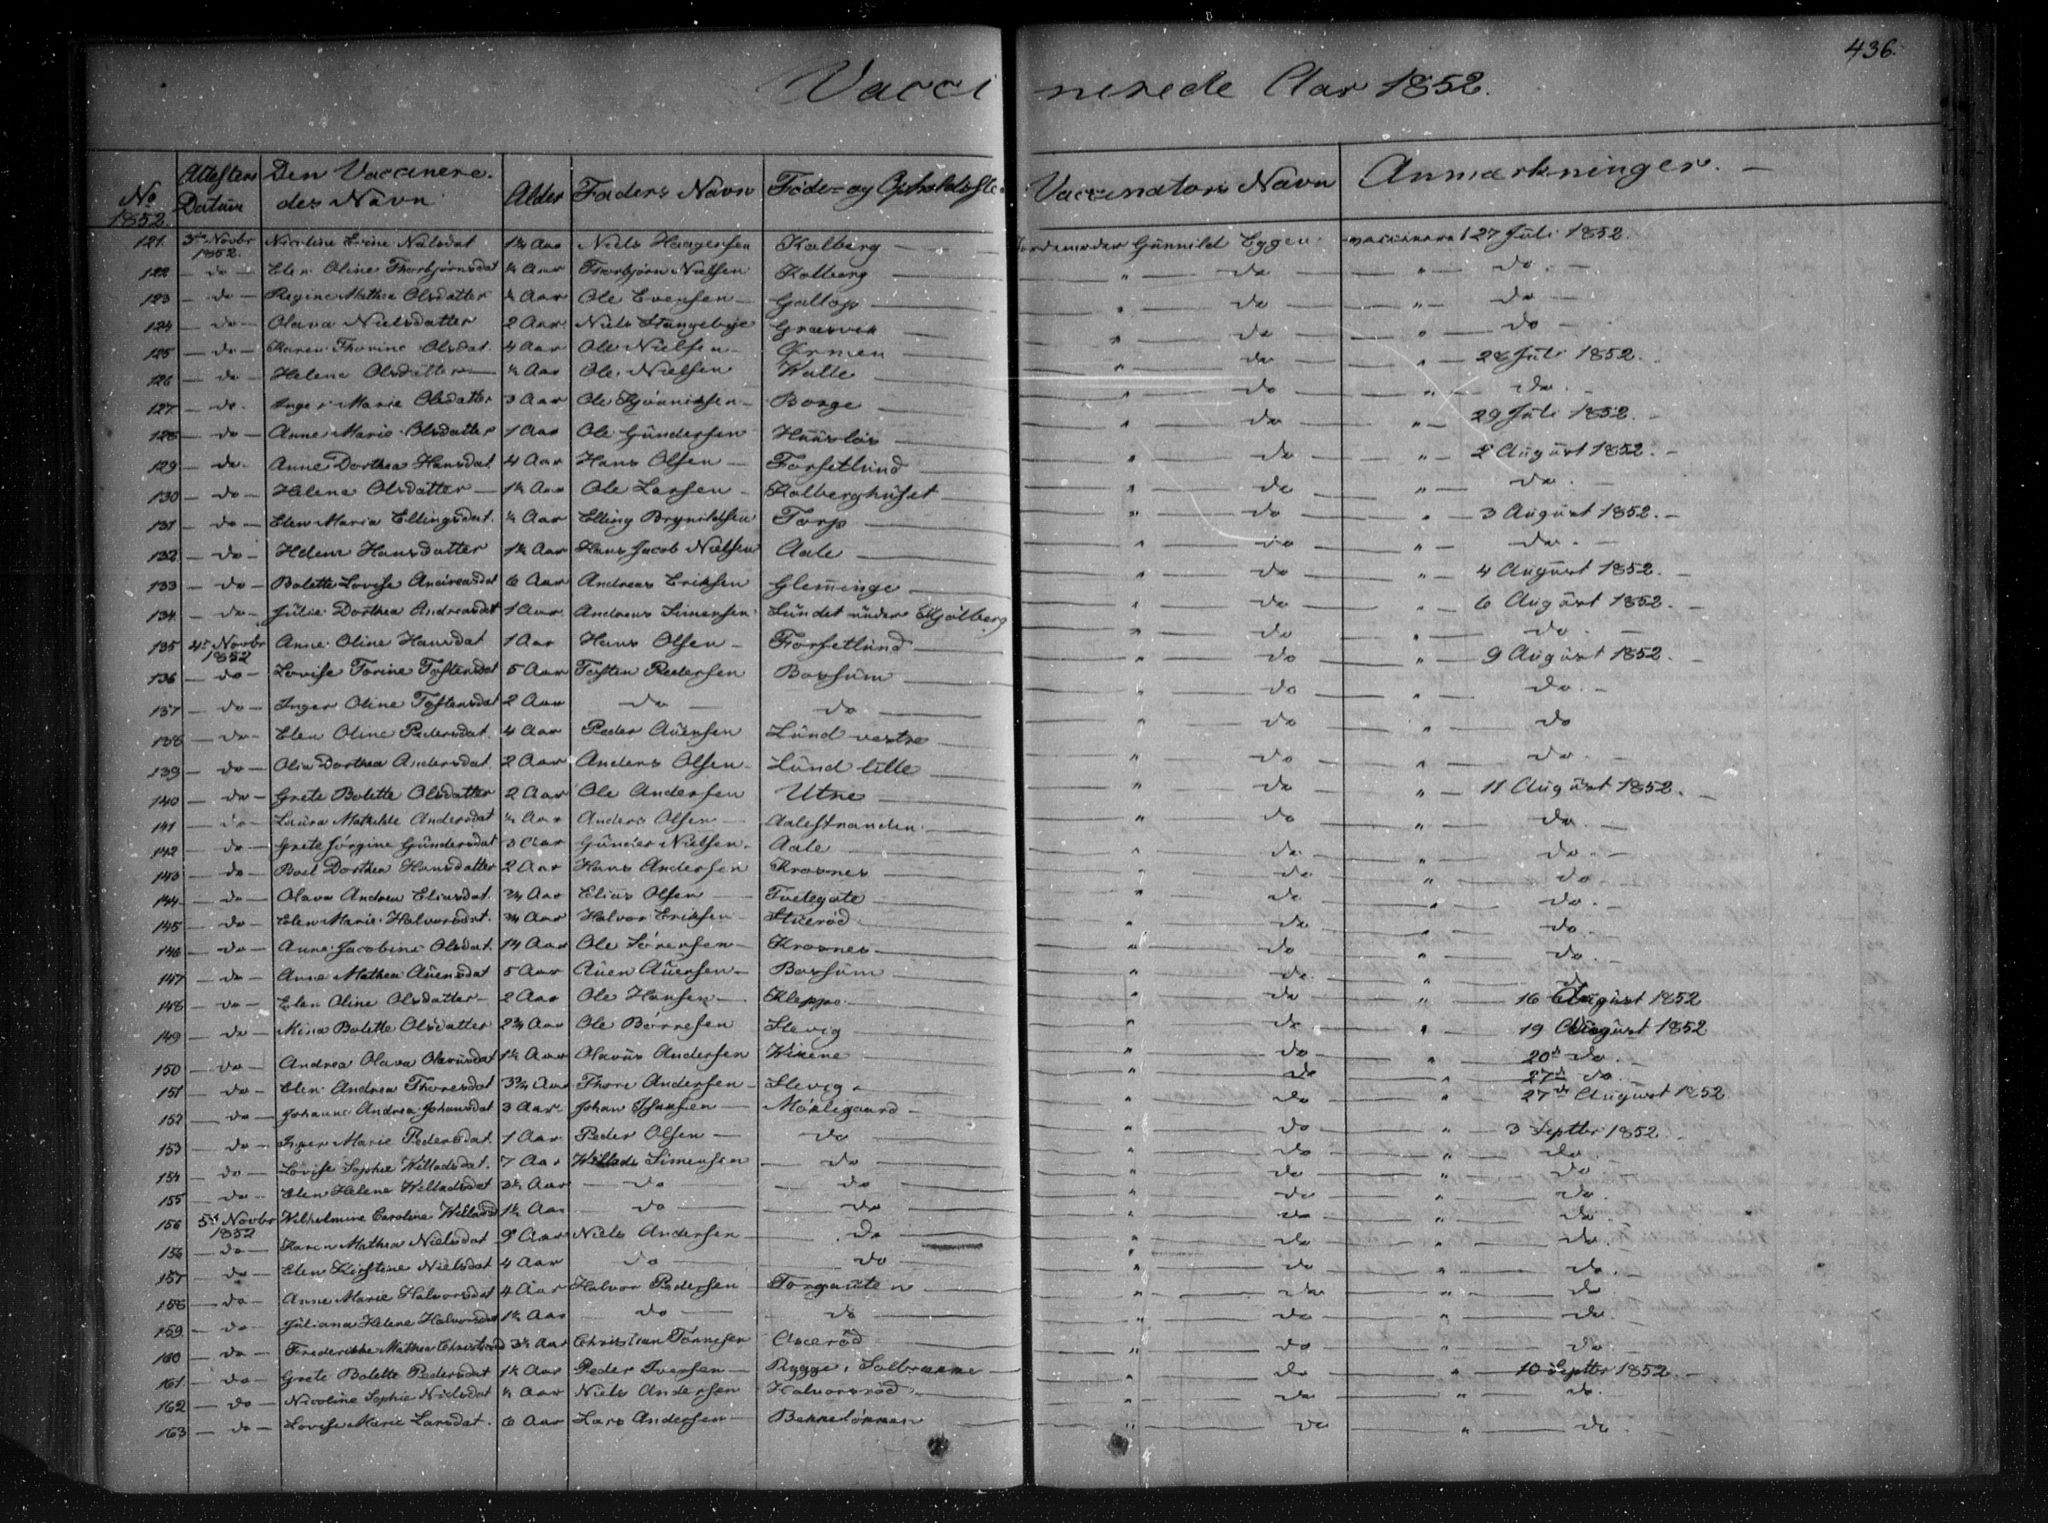 436.
Vaccinerede Aar 1852.
No 1852. Attestens Datum Den Vaccineredes Navn Alder Faders Navn Føde- og Opholdsste Vaccinators Navn Anmærkninger. —
121. 3de Novbr 1852. Nicoline Niels Haagensen Kalberg — Jordemoder Gunnild Eggen vaccineret 27 Juli 1852.
122 — do — Elen Oline Thorbjørnsdat ½ Aar Thorbjørn Nielsen Kolberg — " — do — " — do. —
123 — do — Regine Mathea Olsdatter ½ Aar Ole Evensen — Gallop — " — do — " — do —
124 — do — Olava Nielsdatter 2 Aar Niels Stangebye Græsvik — " — do — " — do —
125 — do — Karen Thorine Olsdat. 4 Aar Ole Nielsen — Ørmen — " — do — " — 28 Juli 1852.
126 — do — Helene Olsdatter — ½ Aar Ole Nielsen Kalle — " — do — " — do. —
127 — do. Inger Marie Olsdatter 3 Aar Ole — Borge — " — do — " — 29 Juli 1852. —
128 — do — Anne Marie Olsdatter 1 Aar Ole Gundersen — " — do — " — 2 August 1852. —
129 — do. Anne Dorthea Hansdat. 4 Aar Hans Olsen — Forsetlund — " — do — " — do. —
130 — do — Helene Olsdatter — 1½ Aar Ole Larsen — Kalberghuset — " — do — " — 3 August 1852. —
131 — do — Elen Maria Ellingsdat. ½ Aar Elling Brynildsen Torp — " — do — " — do. —
132 — do — Helene Hansdatter 1½ Aar Hans Jacob Nielsen Aale — " — do — " — 4 August 1852. —
133 — do — Bolette Lovise Andreasdat 6 Aar Andreas Eriksen Glemminge — " — do — " — 6 August 1852. —
134 — do — Julie Dorthea Andreasdat 1 Aar. Andreas Simensen Lundet under Kjølberg — " — do — " — do. —
135 4de Novbr 1852 Anne Oline Hansdat 1 Aar Hans Olsen — Forsetlund — " — do — " — 9 August 1852. —
136 — do — Lovise Torine Tostensdat 5 Aar Tosten Pedersen Borsum — " — do — " — do. —
137 — do — Inger Oline Tostensdat 2 Aar — do — do. — " — do — " — do
138 — do — Elen Oline Pedersdat. 4 Aar Peder Auensen Lund vestre — " — do — " — do. —
139 — do — Olia Dorthea Andersdat. 2 Aar Anders Olsen — Lund lille — " — do — " — 11 August 1852. —
140 — do — Grete Bolette Olsdatter 2 Aar Ole Andersen Utne — " — do — " — do. —
141 — do — Laura Mathilde Andersdat ½ Aar Anders Olsen — Aalestranden — " — do — " — do. —
142 — do — Grete Jørgine Gundersdat 3 Aar Gunder Nielsen. Aale — " — do — " — do —
143 — do — Boel Dorthea Hansdatter 2 Aar Hans Andersen Krosnes — " — do — " — do. —
144 — do — Olava Andrea Eliasdat. ¾ Aar Elias Olsen — Tvetegate — " — do — " — do. —
145 — do — Elen Marie Halvorsdat. ¾ Aar Halvor Eriksen — — " — do — " — do. —
146 — do — Anne Jacobine Olsdat. Aar Ole Sørensen — Krosnes — " — do. — " — do.
147 — do — Anne Mathea Auensdat 5 Aar Auen Auensen — Borsum — " — do — " — 16 August 1852
148 — do — Elen Oline Olsdatter — 2 Aar Ole Hansen — Kleppe — " — do — " — 19 August 1852
149 — do — Mina Bolette Olsdatter 2¾ Aar Ole Børresen Slevig — " — do — " — 20de do. —
150 — do — Andrea Olava Olavusdat 1½ Aar Olavus Andersen Vikene — " — do — " — 27de do. —
151 — do — Elen Andrea Thoresdat 3¾ Aar Thore Andersen — Slevig — " — do — " — 27de August 1852
152 — do — Johanne Andrea Johansdat 3 Aar. Johan — — " — do — " — 3 Septbr 1852. —
153 — do — Marie Pedersdat. 1 Aar Peder Olsen — do — " — do — " — do. —
154 — do — Lovise Sophie Willadsdat. 7 Aar Willads Simensen — do — " — do — " — do. —
155 — do — Elen Helene Willadsdat 3½ Aar — do — do — " — do — " — do.
156 5de Novbr 1852 Wilhelmine Caroline Willadsd 1½ Aar — do — do — " — do — " — do. —
156 — do — Karen Mathea Nielsdat 9 Aar Niels Andersen — do — " — do — " — do. —
157 — do — Elen Kirstine Nielsdat 4 Aar do — do — " — do — " — do. —
158 — do — Anne Marie Halvorsdat 4 Aar Halvor Pedersen — Torgauten — " — do — " — do —
159 — do — Juliana Helene Halvorsdat 1½ Aar — do — do — " — do — " — do. —
160 — do — Frederikke Mathea 3½ Aar Christian Tønnesen — " — do — " — do. —
161. — do — Grete Bolette Pedersdat 1½ Aar Peder Iversen — Rygge, — " — do — " — 10 Septbr 1852. —
162 — do — Nicoline Sophie Nielsdat ½ Aar Niels Andersen Halvorsrød — " — do — " — do.
163 — do — Lovise Marie Larsdat. 6 Aar Lars Andersen — — " — do — " — do